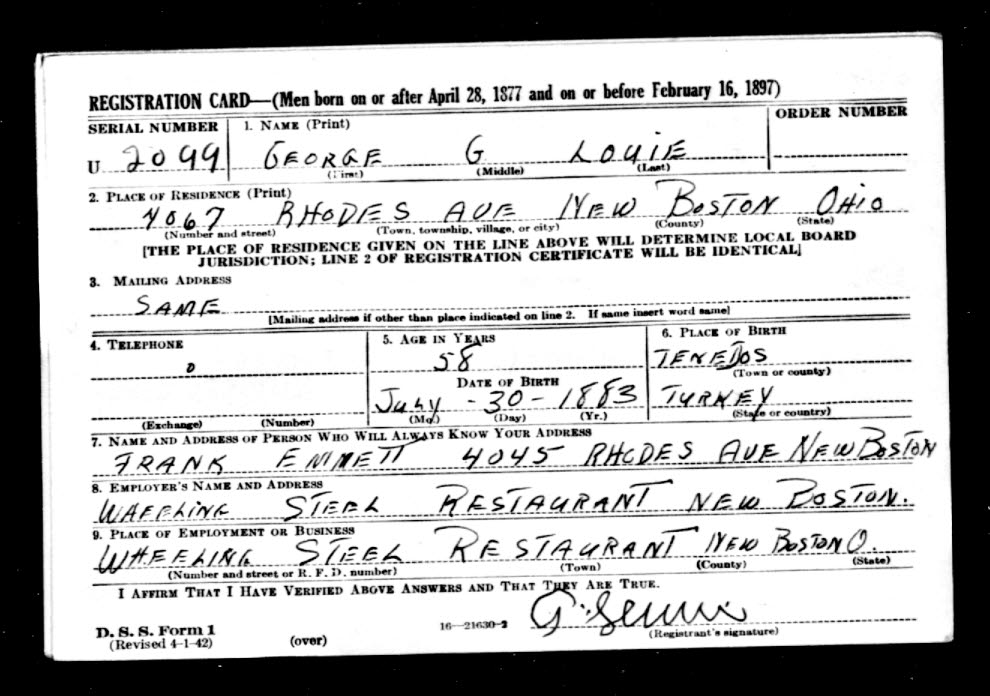 REGISTRATION CARD—(Men born on or after April 28, 1877 and on or before February 16, 1897)
SERIAL NUMBER 1. NAME (Print) ORDER NUMBER
U 2099 GEORGE G LOUIE
(First) (Middle) (Last)
2. PLACE OF RESIDENCE (Print)
4067 RHODES AVE NEW BOSTON OHIO
(Number and street) (Town, township, village, or city) (County) (State)
[THE PLACE OF RESIDENCE GIVEN ON THE LINE ABOVE WILL DETERMINE LOCAL BOARD
JURISDICTION; LINE 2 OF REGISTRATION CERTIFICATE WILL BE IDENTICAL]
3. MAILING ADDRESS
SAME
[Mailing address if other than place indicated on line 2. If same insert word same]
4. TELEPHONE 5. AGE IN YEARS 6. PLACE OF BIRTH
0 58 TENEDOS
(Town or county)
DATE OF BIRTH
July - 30 - 1883 TURKEY
(Exchange) (Number) (Mo.) (Day) (Yr.) (State or country)
7. NAME AND ADDRESS OF PERSON WHO WILL ALWAYS KNOW YOUR ADDRESS
FRANK EMMETT 4045 RHODES AVE NEW BOSTON
8. EMPLOYER'S NAME AND ADDRESS
WHEELING STEEL RESTAURANT NEW BOSTON.
9. PLACE OF EMPLOYMENT OR BUSINESS
WHEELING STEEL RESTAURANT NEW BOSTON O.
(Number and street or R. F. D. number) (Town) (County) (State)
I AFFIRM THAT I HAVE VERIFIED ABOVE ANSWERS AND THAT THEY ARE TRUE.
D. S. S. Form 1
(Revised 4-1-42) (over) 16—21630-2 (Registrant's signature)